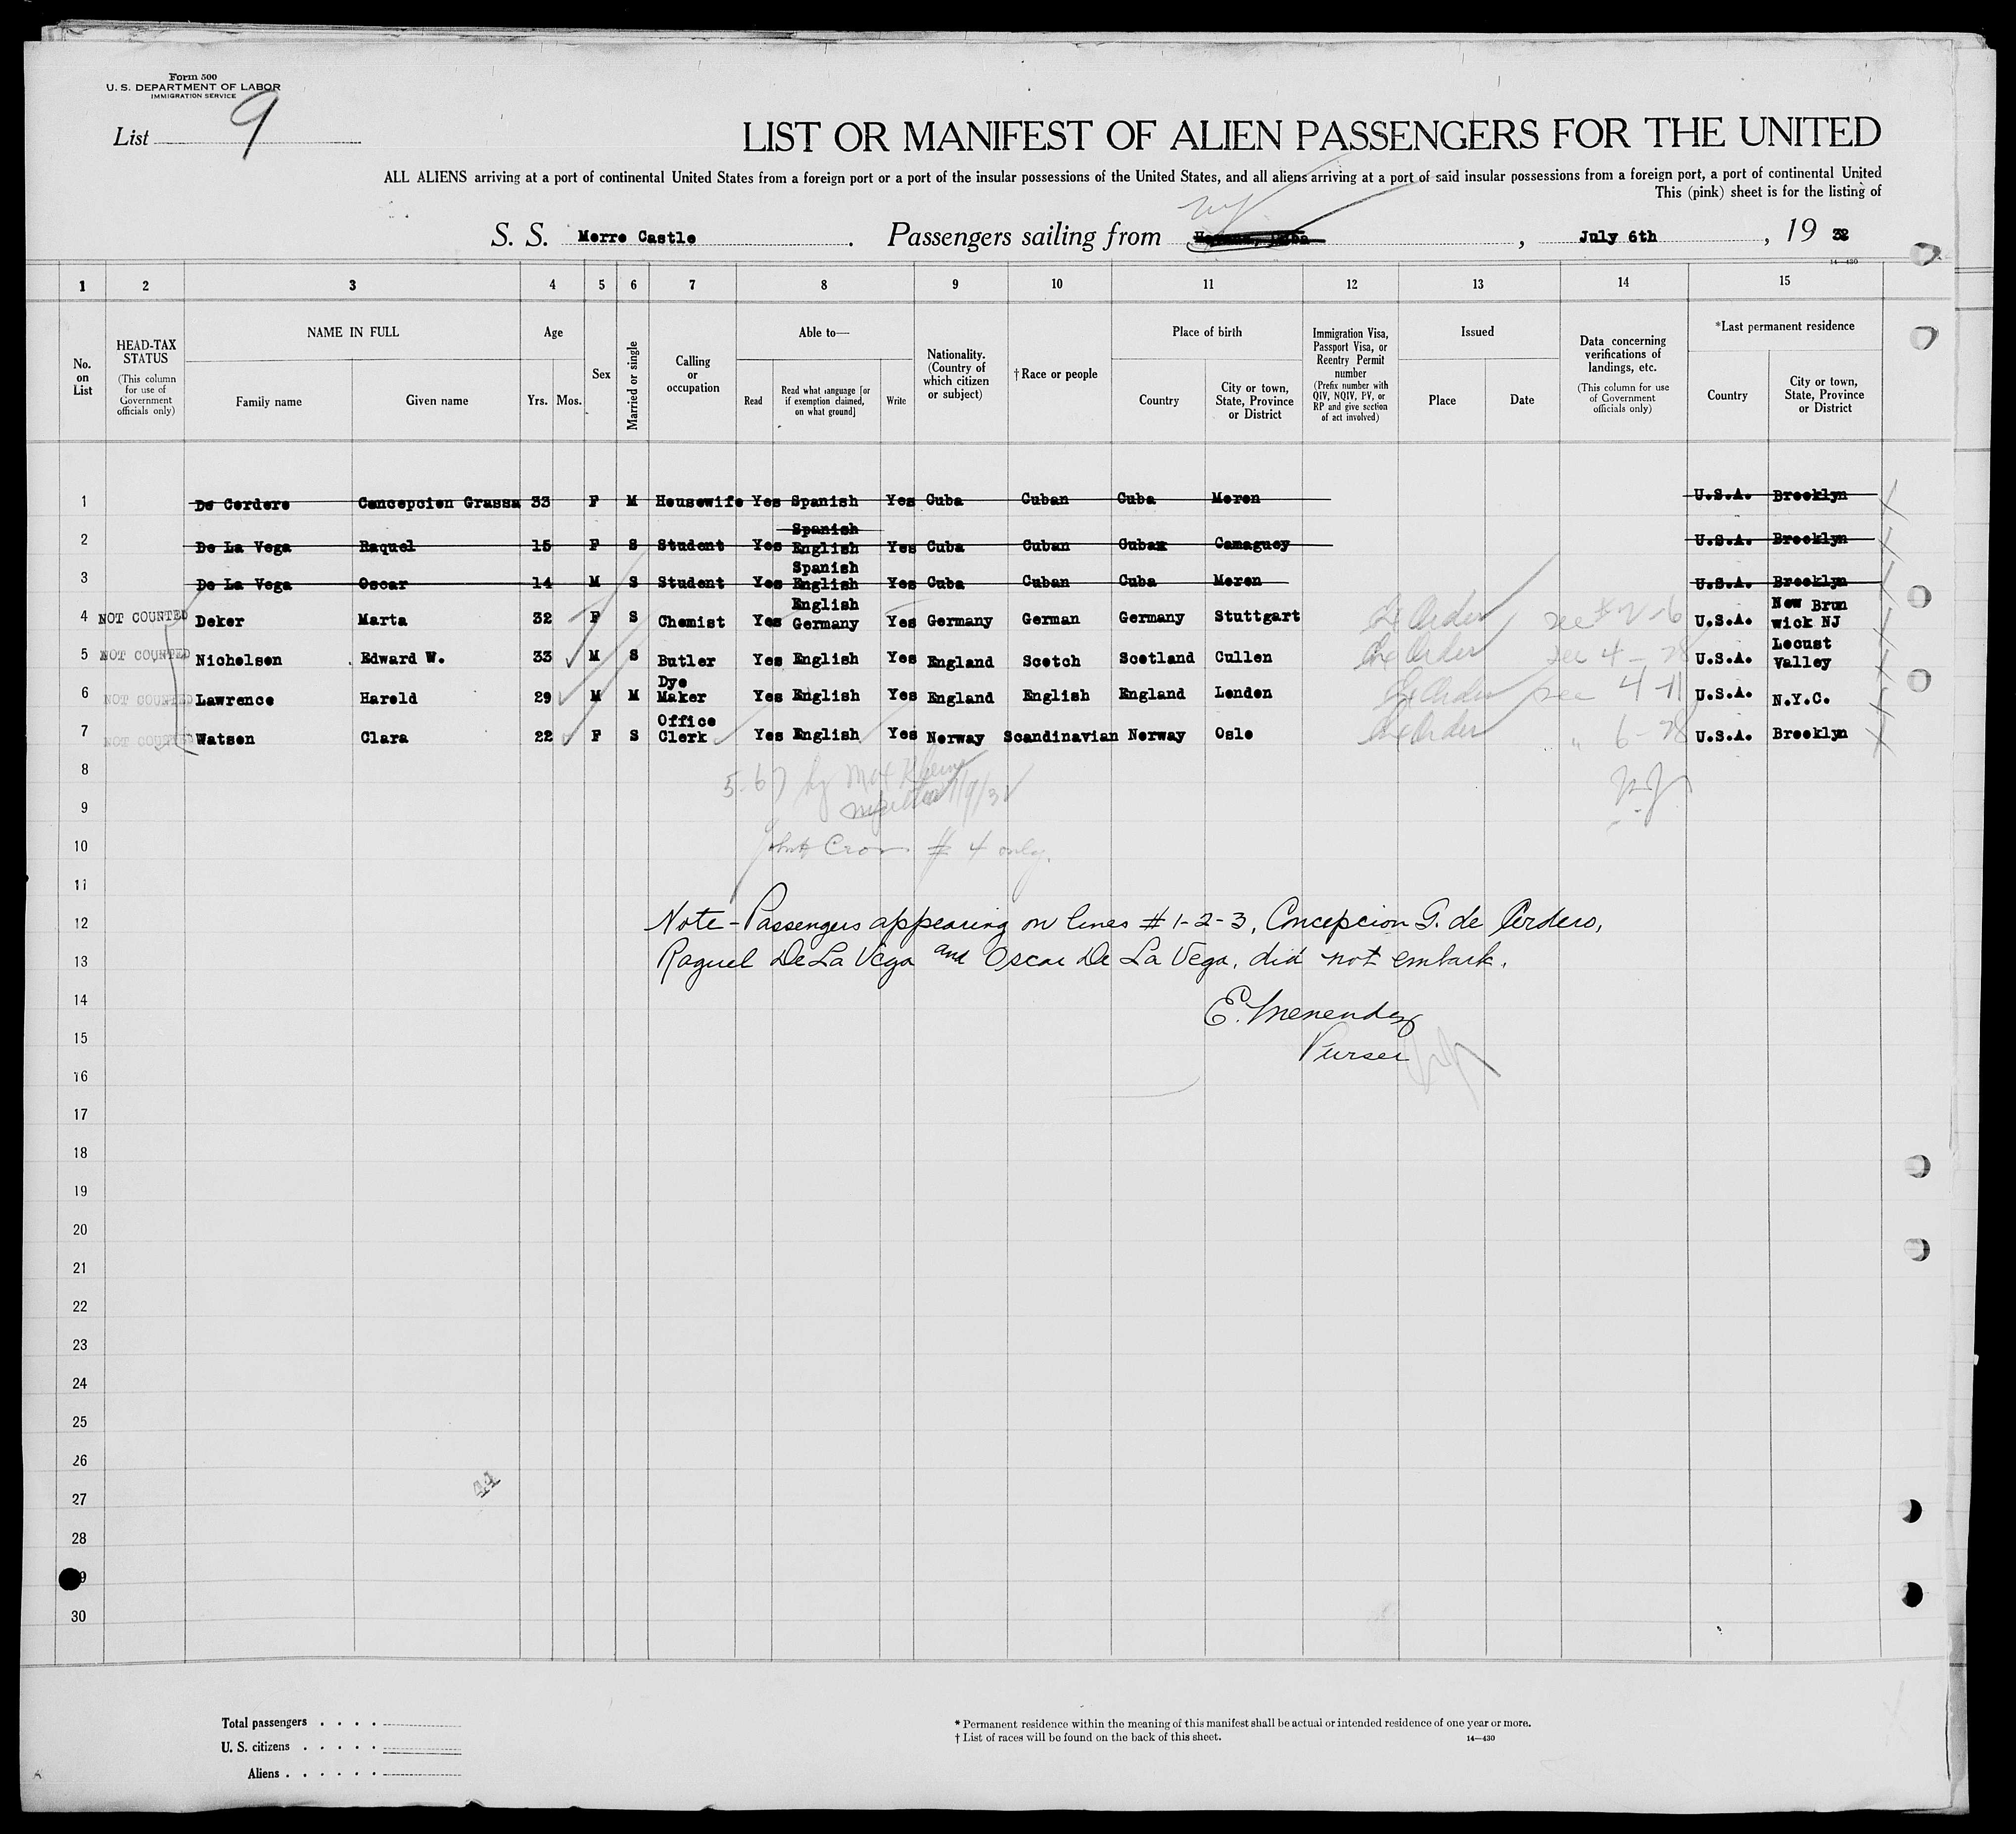 Form 500
U. S. DEPARTMENT OF LABOR
IMMIGRATION SERVICE
List 9
LIST OR MANIFEST OF ALIEN PASSENGERS FOR THE UNITED
ALL ALIENS arriving at a port of continental United States from a foreign port or a port of the insular possessions of the United States, and all aliens arriving at a port of said insular possessions from a foreign port, a port of continental United
This (pink) sheet is for the listing of
S. S. Morro Castle. Passengers sailing from Havana, Cuba, July 6th, 19 32
14—430
1 2 3 4 5 6 7 8 9 10 11 12 13 14 15
No. on List
HEAD-TAX STATUS (This column for use of Government officials only)
NAME IN FULL
Family name Given name
Age
Yrs. Mos.
Sex
Married or single
Calling or occupation
Able to—
Read Read what language [or if exemption claimed, on what ground] Write
Nationality. (Country of which citizen or subject)
† Race or people
Place of birth
Country City or town, State, Province or District
Immigration Visa, Passport Visa, or Reentry Permit number (Prefix number with QIV, NQIV, PV, or RP and give section of act involved)
Issued
Place Date
Data concerning verifications of landings, etc. (This column for use of Government officials only)
*Last permanent residence
Country City or town, State, Province or District
1 De Cordero Concepcion Grassa 33 F M Housewife Yes Spanish Yes Cuba Cuban Cuba Moron U.S.A. Brooklyn
2 De La Vega Raquel 15 F S Student Yes Spanish English Yes Cuba Cuban Cubax Camaguey U.S.A. Brooklyn
3 De La Vega Oscar 14 M S Student Yes Spanish English Yes Cuba Cuban Cuba Moron U.S.A. Brooklyn
4 NOT COUNTED Deker Marta 32 F S Chemist Yes English Germany Yes Germany German Germany Stuttgart see # 2-6 U.S.A. New Brun wick NJ
5 NOT COUNTED Nicholson Edward W. 33 M S Butler Yes English Yes England Scotch Scotland Cullen see 4-28 U.S.A. Locust Valley
6 NOT COUNTED Lawrence Harold 29 M M Dye Maker Yes English Yes England English England London see 4-11 U.S.A. N.Y.C.
7 NOT COUNTED Watson Clara 22 F S Office Clerk Yes English Yes Norway Scandinavian Norway Oslo " 6-28 U.S.A. Brooklyn
8
9
10 # 4 only.
11
12 Note - Passengers appearing on lines # 1-2-3, Concepcion G. de Cordero,
13 Raquel De La Vega and Oscar De La Vega, did not embark.
14 E. Menendez
15 Purser
16
17
18
19
20
21
22
23
24
25
26
27
28
30
Total passengers . . . .
U. S. citizens . . . . .
Aliens . . . . . .
* Permanent residence within the meaning of this manifest shall be actual or intended residence of one year or more.
† List of races will be found on the back of this sheet.
14—430